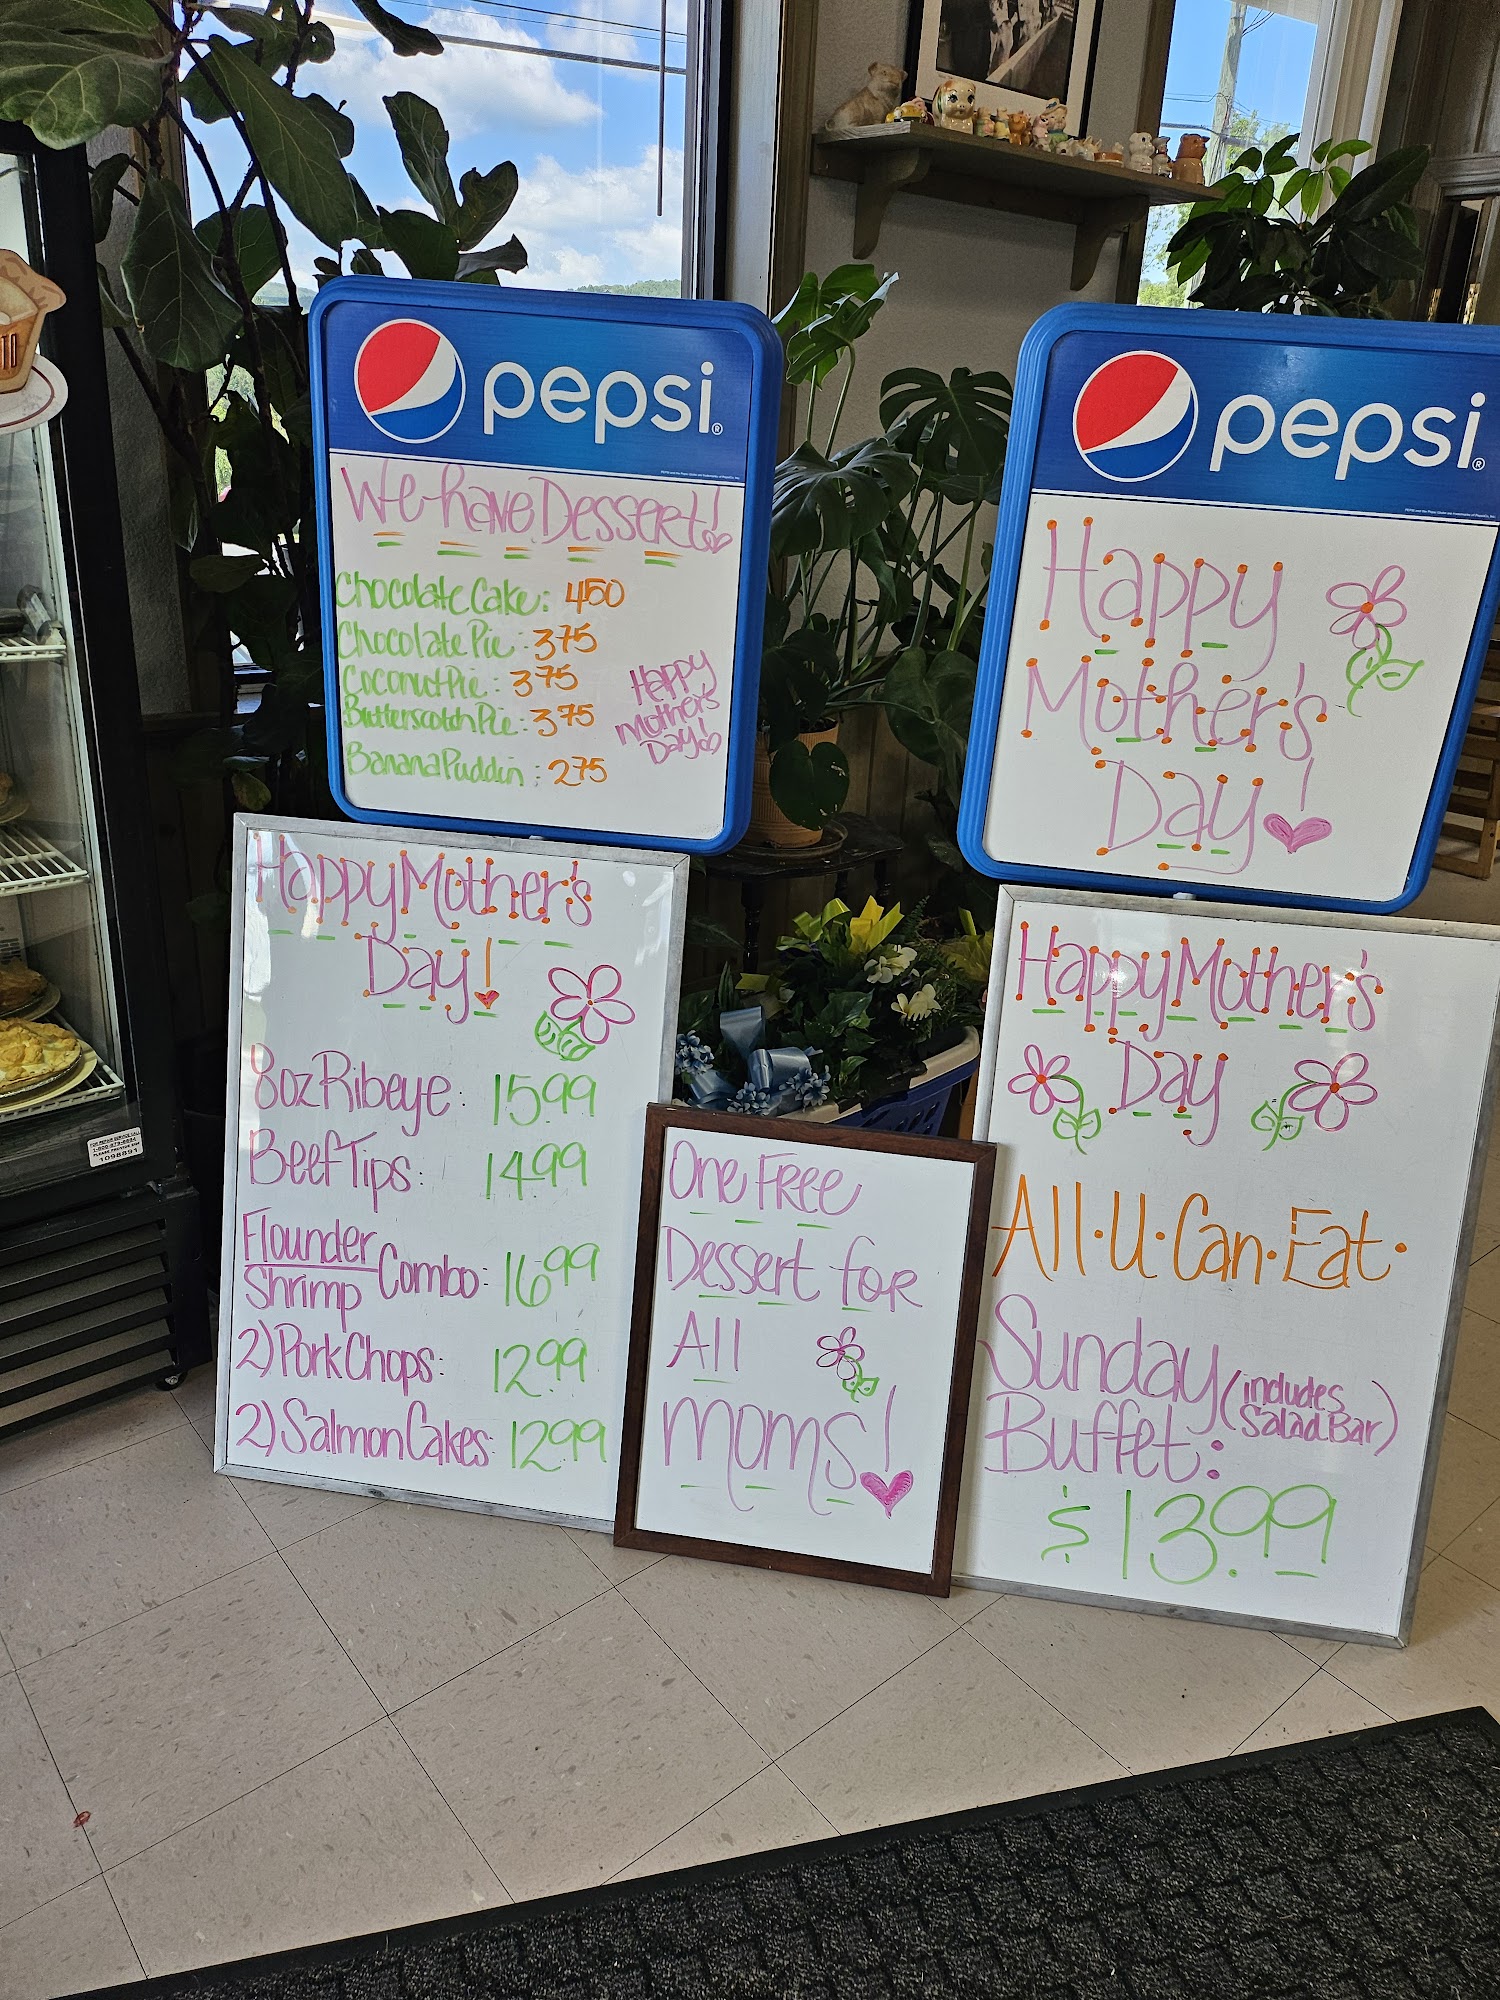 pepsi
We have Dessert!
Chocolate Cake: 450
Chocolate Pie: 375
Coconut Pie: 375
Butterscotch Pie: 375
Banana Puddin: 275
Happy
Mother's
Day!
pepsi
Happy
Mother's
Day!
Happy Mother's
Day!
8oz Ribeye: 15.99
Beef Tips: 14.99
Flounder
Shrimp Combo: 16.99
2) Pork Chops: 12.99
2) Salmon Cakes: 12.99
One Free
Dessert for
All
Moms!
Happy Mother's
Day
All·U·Can·Eat·
Sunday (includes
Buffet: Salad Bar)
$13.99
FOR REPAIR SERVICE CALL
1098891